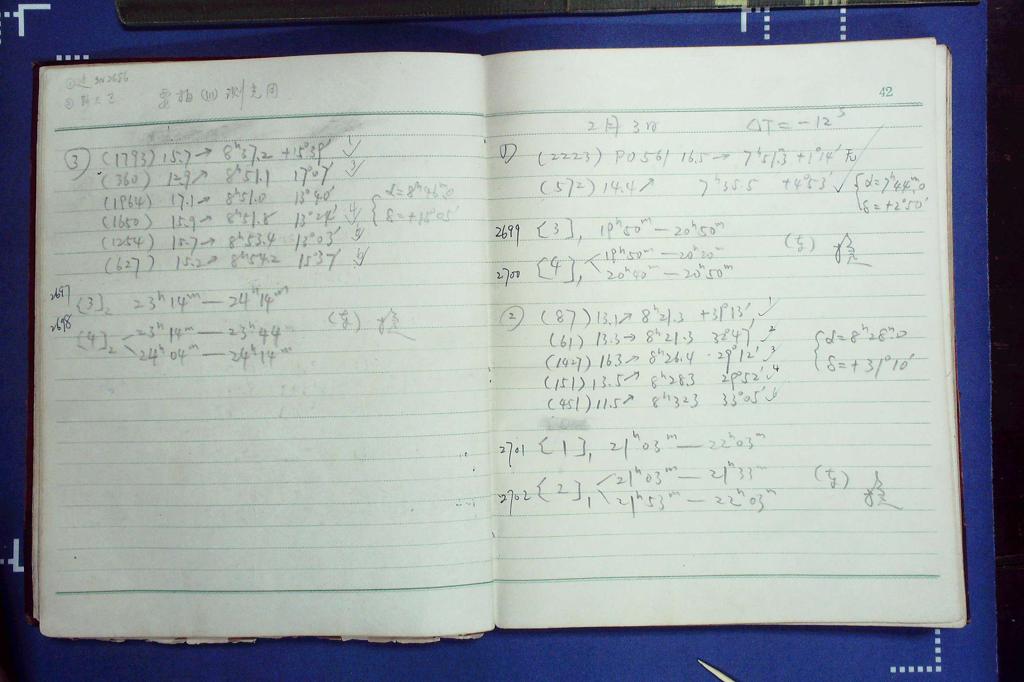 ③ (1793) 15.7→ 8ʰ37.2 +15°39′ ✓
(360) 12.9↗ 8ʰ51.1 17°07′ ✓
(1964) 17.1→ 8ʰ51.0 13°40′
(1650) 15.9→ 8ʰ51.8 13°24′ ✓
(1254) 15.7→ 8ʰ53.4 13°03′ ✓
(627) 15.2→ 8ʰ54.2 15°37′ ✓
{α=8ʰ46ᵐ.0
δ=+15°05′
2697 [3]₂ 23ʰ14ᵐ—24ʰ14ᵐ
2698 [4]₂ 23ʰ14ᵐ—23ʰ44ᵐ
24ʰ04ᵐ—24ʰ14ᵐ
42
2月3日 ΔT=-12ˢ
① (2223) PO561 16.5→ 7ʰ51.3 +1°14′ 无
(572) 14.4↗ 7ʰ35.5 +4°53′ ✓
{α=7ʰ44ᵐ.0
δ=+2°50′
2699 [3]₁ 19ʰ50ᵐ—20ʰ50ᵐ
2700 [4]₁ 19ʰ50ᵐ—20ʰ20ᵐ
20ʰ40ᵐ—20ʰ50ᵐ
② (87) 13.1↗ 8ʰ21.3 +31°13′ ✓ 1
(61) 13.3→ 8ʰ21.3 32°47′ ✓ 2
(1427) 16.3↗ 8ʰ26.4 29°12′ ✓ 3
(151) 13.5↗ 8ʰ28.3 29°52′ ✓ 4
(451) 11.5↗ 8ʰ32.3 33°05′ ✓
{α=8ʰ28ᵐ.0
δ=+31°10′
2701 [1]₁ 21ʰ03ᵐ—22ʰ03ᵐ
2702 [2]₁ 21ʰ03ᵐ—21ʰ33ᵐ
21ʰ53ᵐ—22ʰ03ᵐ